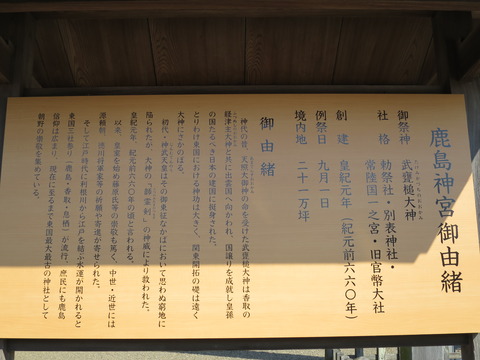 鹿島神宮御由緒
御祭神 武甕槌大神
社格 勅祭社・別表神社・
常陸国一之宮・旧官幣大社
創建 皇紀元年（紀元前六六〇年）
例祭日 九月一日
境内地 二十一万坪
御由緒
神代の昔、天照大御神の命を受けた武甕槌大神は香取の
経津主大神と共に出雲国へ向かわれ、国譲りを成就し皇孫
の国たるべき日本の建国に挺身された。
とりわけ東国における神功は大きく、関東開拓の礎は遠く
大神にさかのぼる。
初代・神武天皇はその御東征なかばにおいて思わぬ窮地に
陥られたが、大神の「韴霊剣」の神威により救われた。
皇紀元年、紀元前六六〇年の頃と言われる。
以来、皇室を始め藤原氏等の崇敬も篤く、中世・近世には
源頼朝、徳川将軍家等の祈願や寄進が寄せられた。
そして江戸時代に利根川から江戸を結ぶ水運が開かれると
東国三社参り（鹿島・香取・息栖）が流行、庶民にも鹿島
信仰は広まり、現在に至るまで東国最大最古の神社として
朝野の崇敬を集めている。